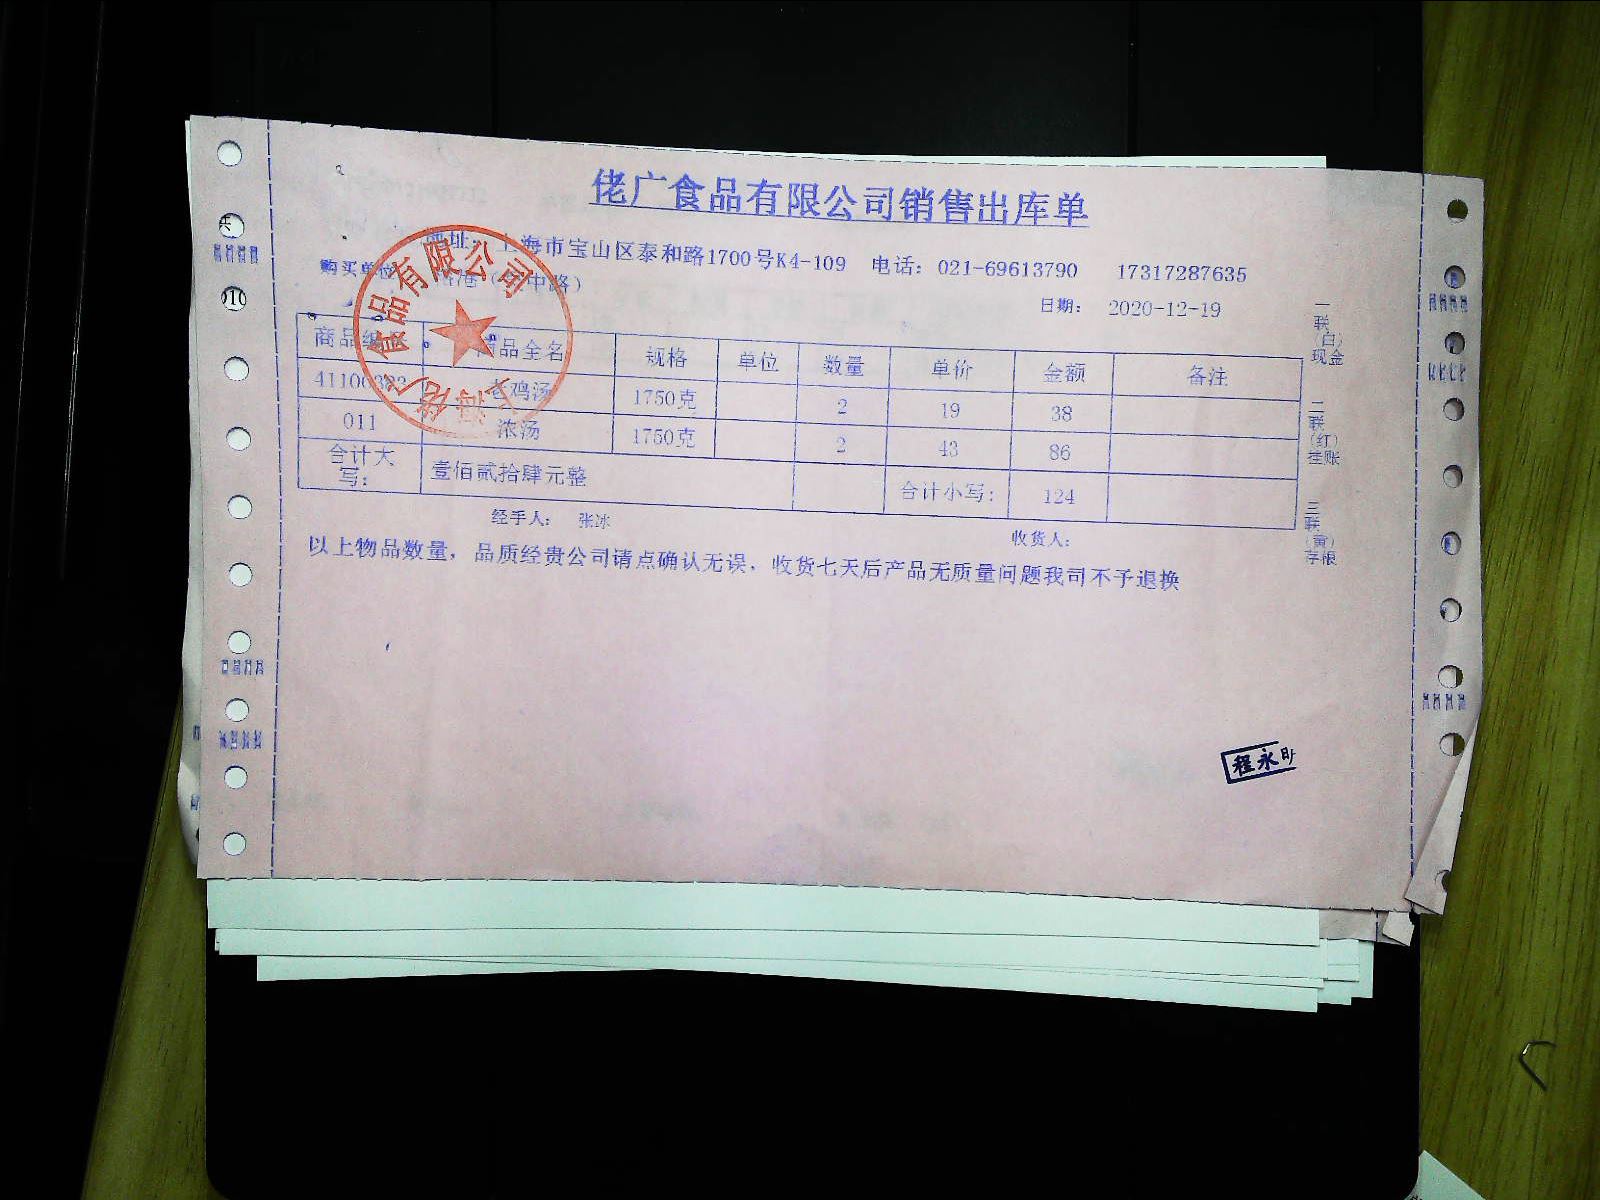 佬广食品有限公司销售出库单
地址: 上海市宝山区泰和路1700号K4-109 电话: 021-69613790 17317287635
购买单位 中路)
日期: 2020-12-19
商品编 商品全名 规格 单位 数量 单价 金额 备注
老鸡汤 1750克 2 19 38
011 浓汤 1750克 2 43 86
合计大写: 壹佰贰拾肆元整 合计小写: 124
经手人: 张冰 收货人:
以上物品数量, 品质经贵公司请点确认无误, 收货七天后产品无质量问题我司不予退换
一联(白)现金
二联(红)挂账
三联(黄)存根
食品有限公司
程永